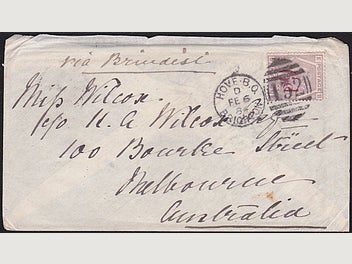 via Brindisi
HOVE · B.O
D
FE 6
84
BRIGHTON
132
Miss Wilcox
c/o H. A Wilcox Esqre
100 Bourke Street
Melbourne
Australia